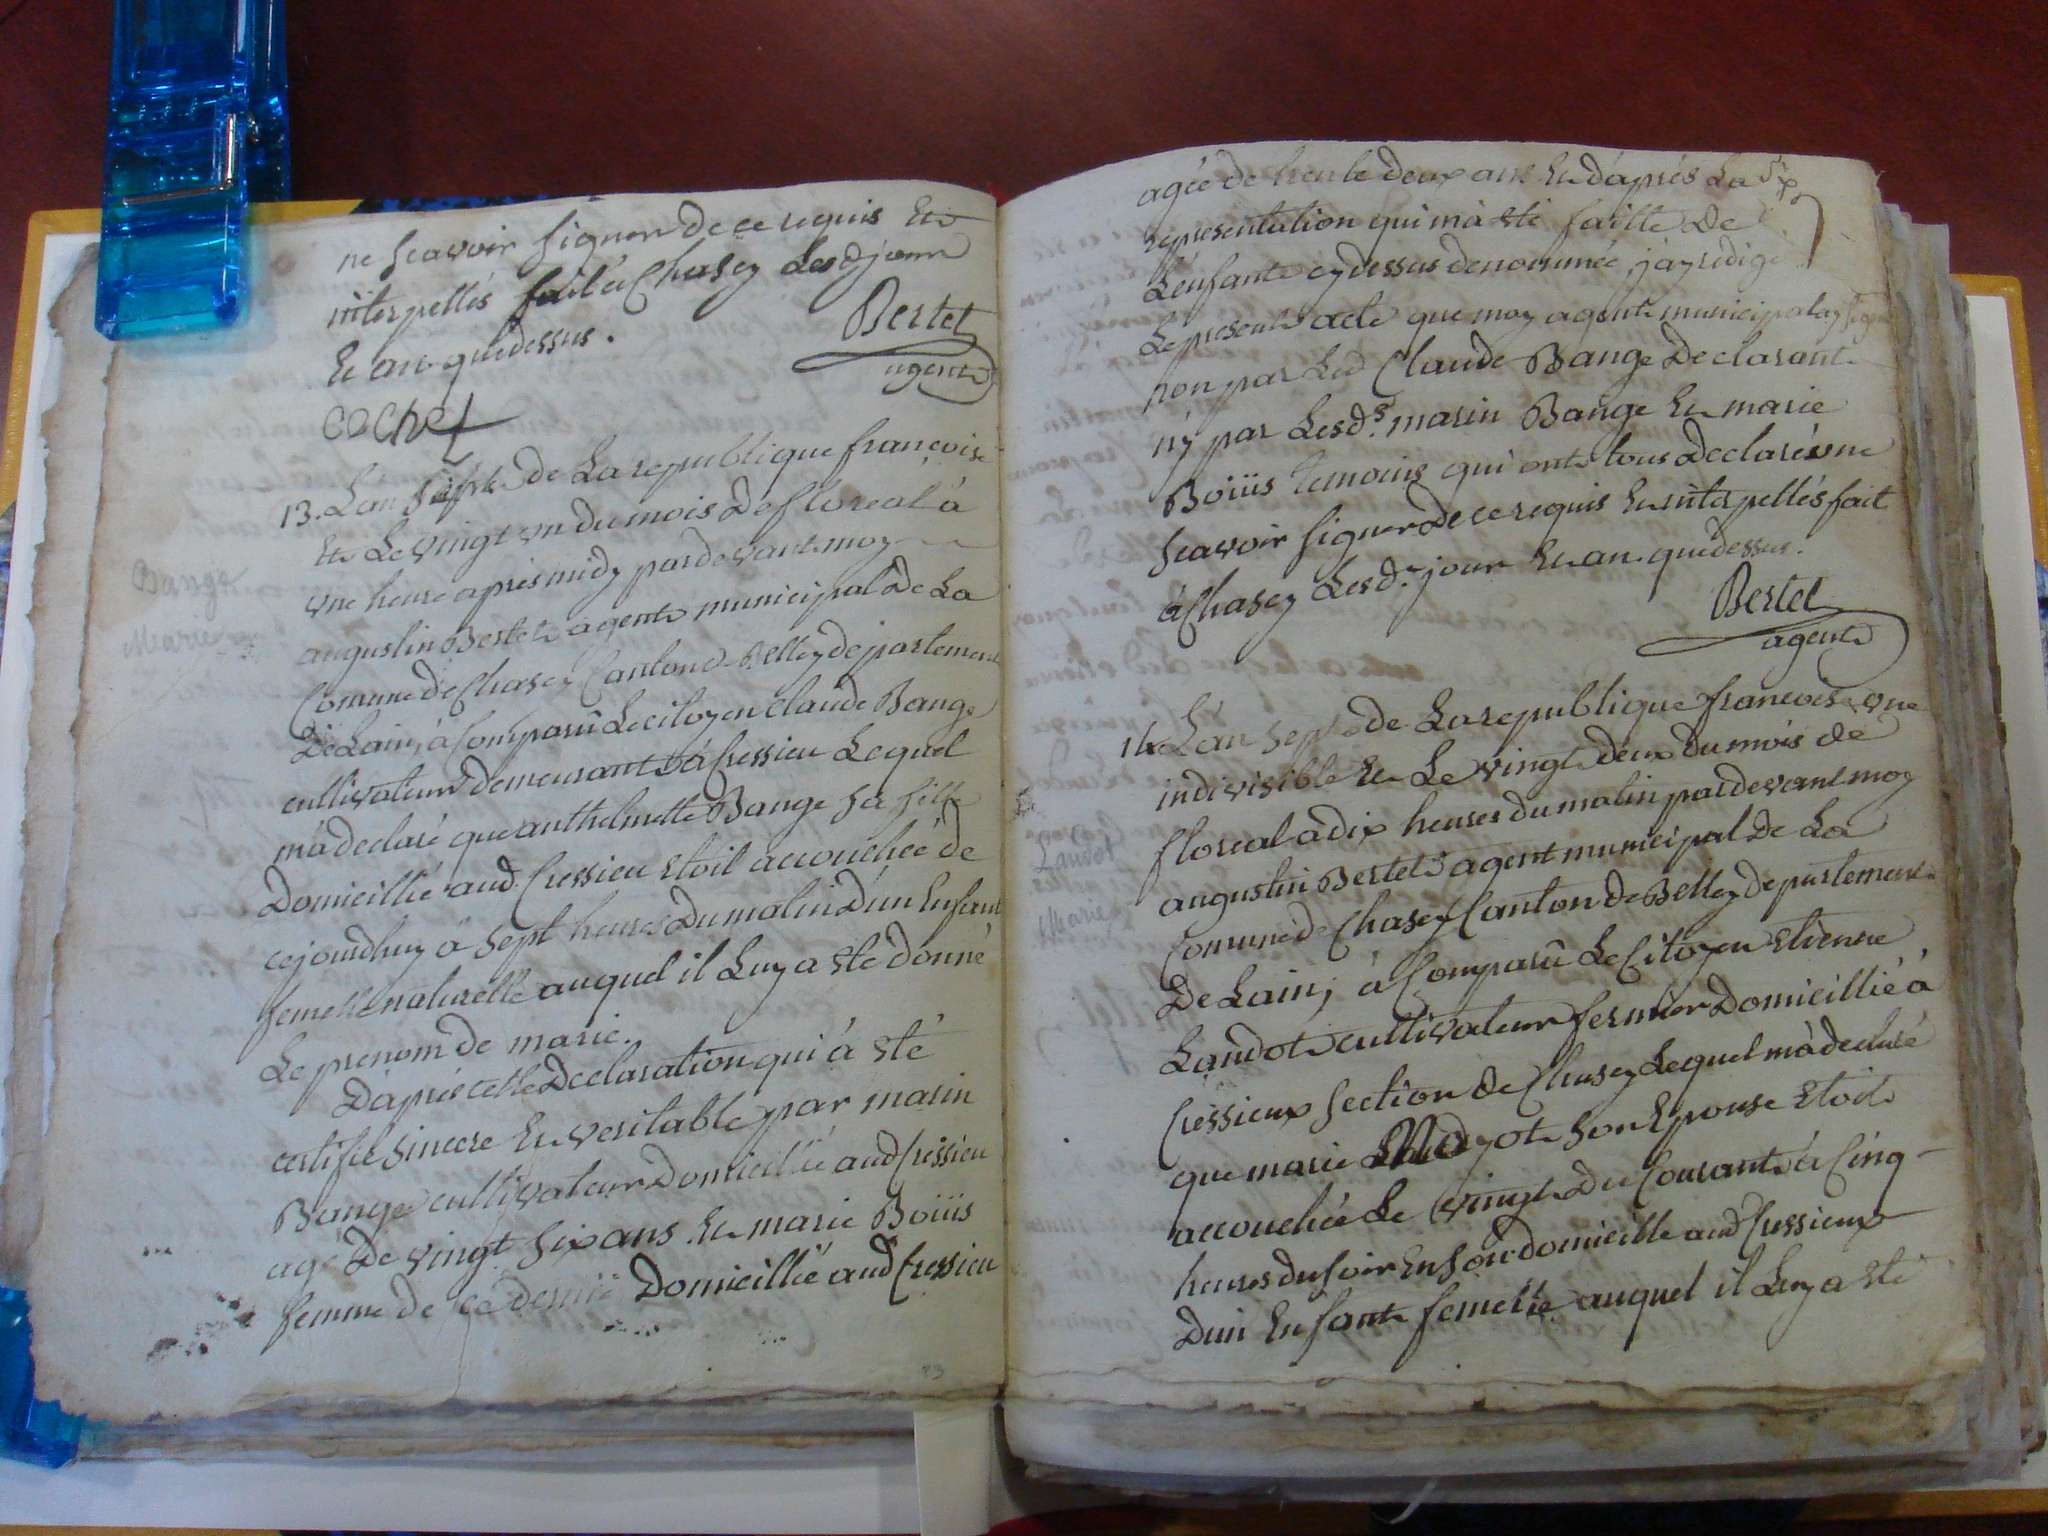 ne Scavoir Signer de ce requis Et
interpellés fait à Chasey Lesd jour
Et an que dessus.
Bertet
agent
cochet
13. L'an Septe de La republique francoise
Et Le vingt vn du mois De floreal à
vne heure apres midy pardevant moy
Bange
Marie
augustin Bertet agent municipal De La
Comune de Chasey Canton d Belley département
De Lain, à Comparû Le citoyen Claude Bange
cultivateur demeurant à Cressieu Lequel
m'a declaré que anthelmette Bange Sa fille
Domicillié aud. Cressieu Etoit accouchéé de
cejourdhuy à Sept heures Du matin D'un Enfant
femelle naturelle auquel il Luy a été donné
Le prenom de marie.
D'après cette Declaration qui à été
certifié Sincere Et veritable par marin
Bange cultivateur Domicillié aud Cressieu
agé De vingt Six ans Et marie Boiiis
femme de ce dernié Domicillié aud Cressieu
23
agéé de trente deux ans Et d'après La
representation qui m'a été faitte De
L'enfant cy dessus denommée, j'ay rédigé
Le present acte que moy agent municipal ay Signé
non par Led Claude Bange Declarant
n'y par Lesd.s marin Bange Et marie
Boiiis temoins qui ont tous declaré ne
Scavoir Signer de ce requis Et interpellés fait
à Chasey Lesd. jour Et an que dessus.
Bertet
agent
14. L'an Septe de La republique francoise vne
indivisible Et Le vingt deux du mois de
floreal à dix heures du matin pardevant moy
Landot
Marie
augustin Bertet agent municipal De La
Comune de Chasey Canton de Belley departement
De Lain, à Comparû Le Citoyen Etienne
Landot cultivateur fermier Domicillié à
Cressieux Section de Chasey Lequel m'a declaré
que marie Son Epouse Etoit
accouchéé Le vingt du Courant à Cinq
heures du Soir En Son domicille aud Cressieux
D'un Enfant femelle auquel il Luy a été